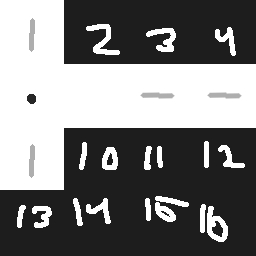 2 3 4
10 11 12
13 14 15 16